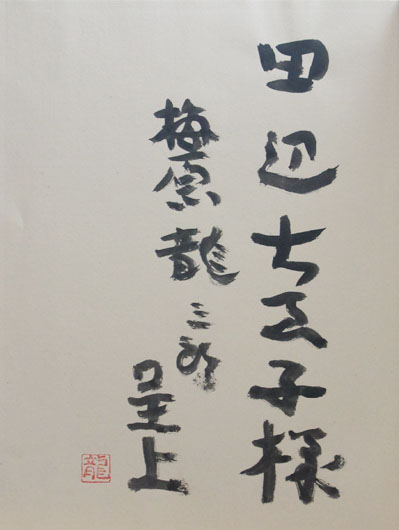 田辺子様
梅原龍三郎
呈上
龍